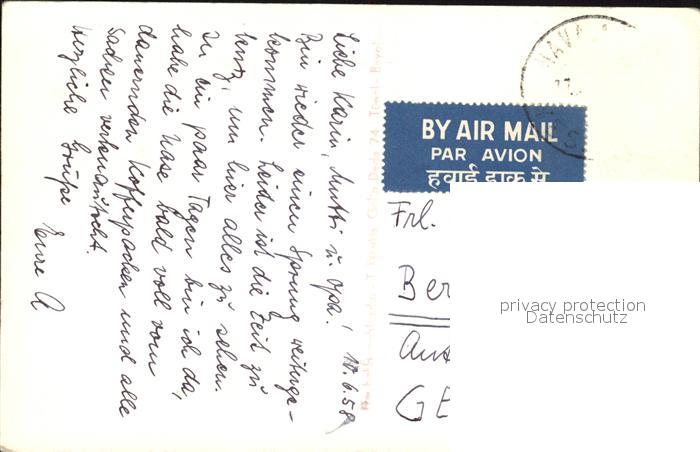 10.6.58
Liebe Karin, Mutti u. Opa!
Bin wieder einen Sprung weiterge-
kommen. Leider ist die Zeit zu
kurz, um hier alles zu sehen.
In ein paar Tagen bin ich da,
habe die Nase bald voll vom
dauernden Kofferpacken und alle
Sachen
Herzliche Grüße
Eure A
BY AIR MAIL
PAR AVION
हवाई डाक से
Frl.
Ber
GE
privacy protection
Datenschutz